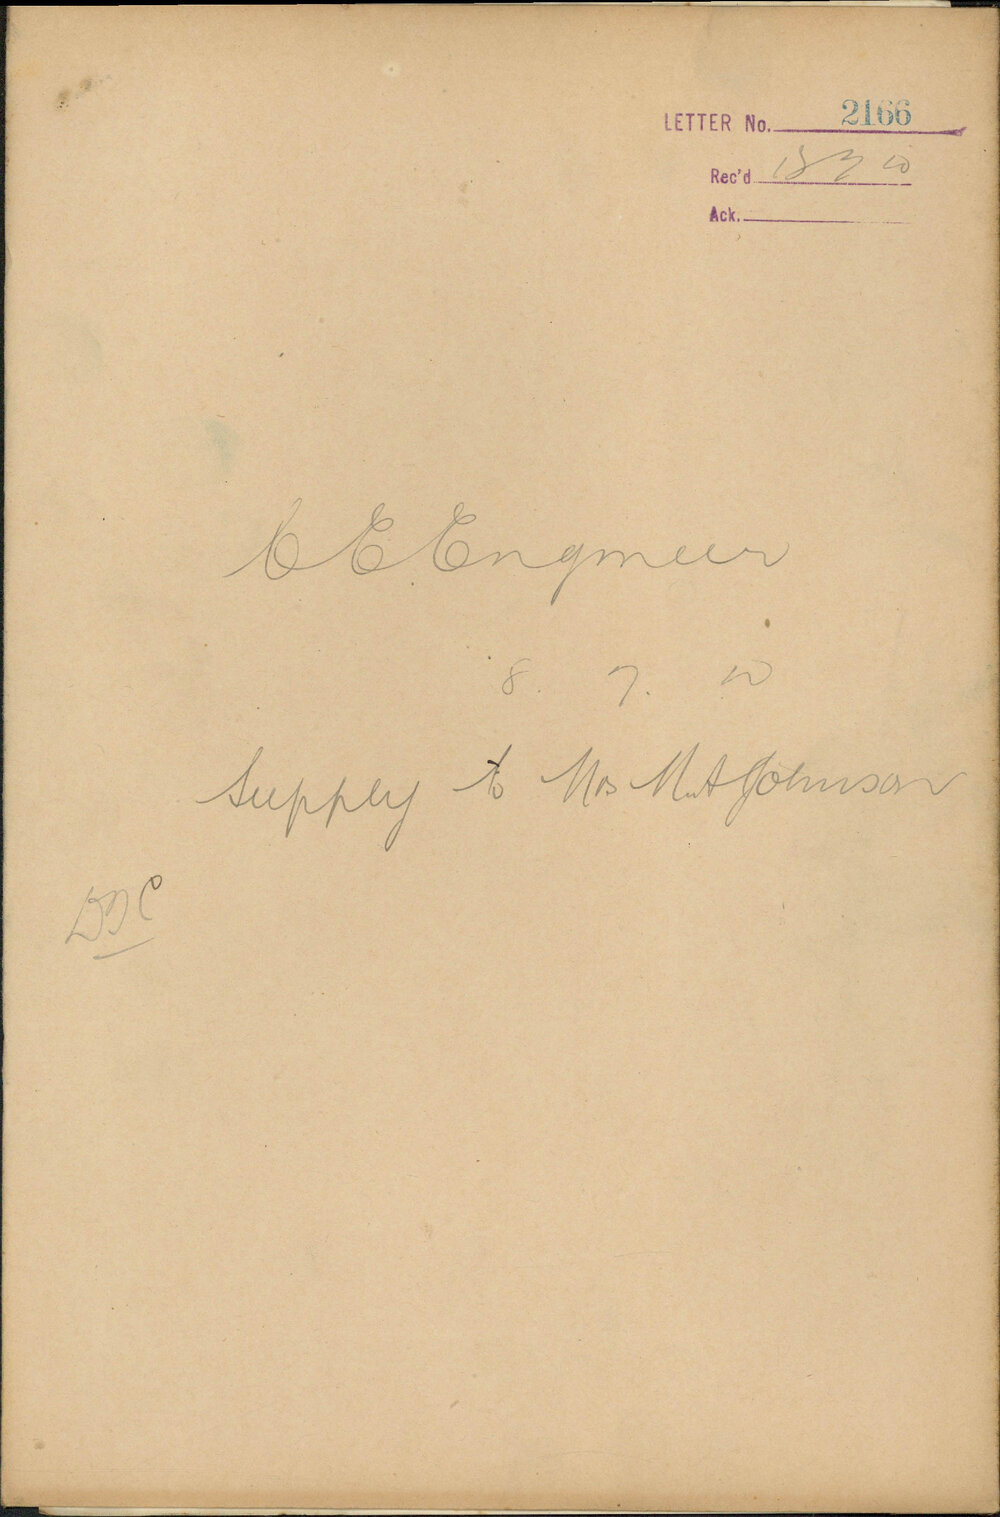 LETTER No. 2166
Rec'd 13 7 10
Ack.
C E Engineer
8. 7. 10
Supply to Mrs M.A Johnson